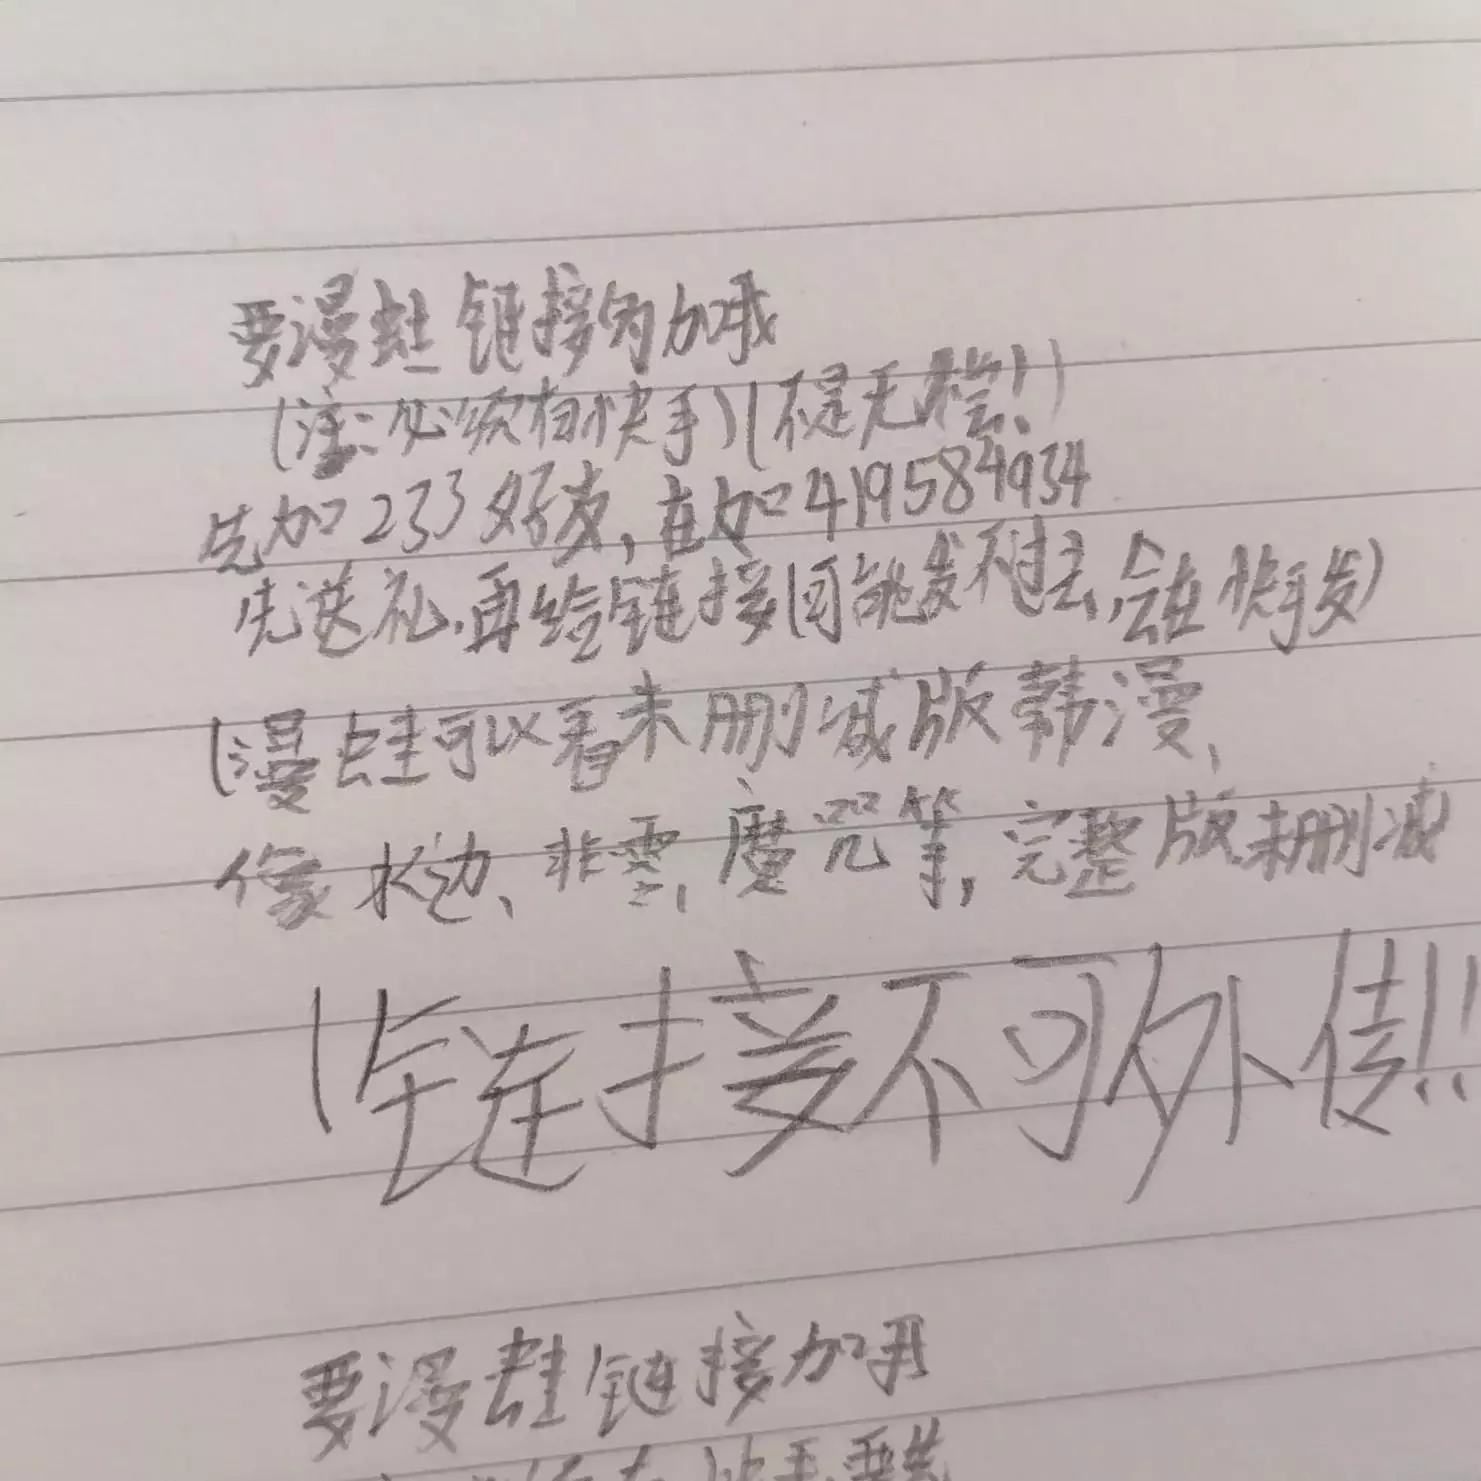 要漫蛙链接的加我
(注:必须有快手)(不是无偿!)
先加233好友,在加419584934
先送礼,再给链接(可能发不过去,会在快手发)
(漫蛙可以看未删减版韩漫,
像水边、非雲,魔咒等,完整版未删减
(链接不可外传!!
要漫蛙链接加我